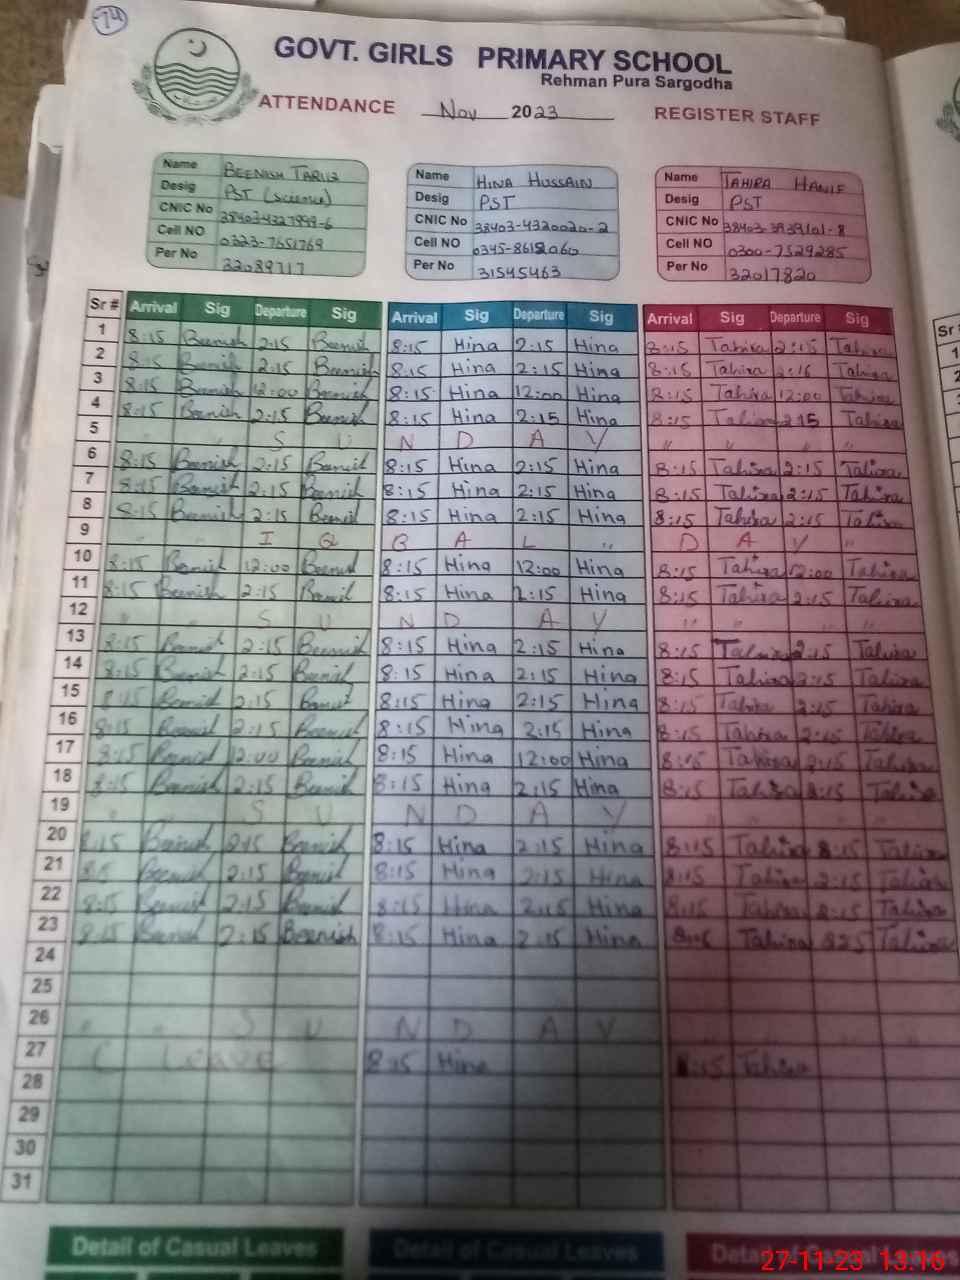 74
GOVT. GIRLS PRIMARY SCHOOL
Rehman Pura Sargodha
ATTENDANCE Nov 2023 REGISTER STAFF
Name BEENISH TARIQ Name HINA HUSSAIN Name TAHIRA HANIF
Desig PST (science) Desig PST Desig PST
CNIC No 38403-4327999-6 CNIC No 38403-4320020-2 CNIC No 38403-3939101-8
Cell NO 0323-7651769 Cell NO 0345-8612060 Cell NO 0300-7529285
Per No 32089717 Per No 31545463 Per No 32017820
Sr # Arrival Sig Departure Sig Arrival Sig Departure Sig Arrival Sig Departure Sig Sr #
1 8:15 Beenish 2:15 Beenish 8:15 Hina 2:15 Hina 8:15 Tahira 2:15 Tahira
2 8:15 Beenish 2:15 Beenish 8:15 Hina 2:15 Hina 8:15 Tahira 2:15 Tahira
3 8:15 Beenish 12:00 Beenish 8:15 Hina 12:00 Hina 8:15 Tahira 12:00 Tahira
4 8:15 Beenish 2:15 Beenish 8:15 Hina 2:15 Hina 8:15 Tahira 2:15 Tahira
5 " " S U N D A Y " " " "
6 8:15 Beenish 2:15 Beenish 8:15 Hina 2:15 Hina 8:15 Tahira 2:15 Tahira
7 8:15 Beenish 2:15 Beenish 8:15 Hina 2:15 Hina 8:15 Tahira 2:15 Tahira
8 8:15 Beenish 2:15 Beenish 8:15 Hina 2:15 Hina 8:15 Tahira 2:15 Tahira
9 " " I Q B A L " D A Y "
10 8:15 Beenish 12:00 Beenish 8:15 Hina 12:00 Hina 8:15 Tahira 12:00 Tahira
11 8:15 Beenish 2:15 Beenish 8:15 Hina 2:15 Hina 8:15 Tahira 2:15 Tahira
12 " " S U N D A Y " " " "
13 8:15 Beenish 2:15 Beenish 8:15 Hina 2:15 Hina 8:15 Tahira 2:15 Tahira
14 8:15 Beenish 2:15 Beenish 8:15 Hina 2:15 Hina 8:15 Tahira 2:15 Tahira
15 8:15 Beenish 2:15 Beenish 8:15 Hina 2:15 Hina 8:15 Tahira 2:15 Tahira
16 8:15 Beenish 2:15 Beenish 8:15 Hina 2:15 Hina 8:15 Tahira 2:15 Tahira
17 8:15 Beenish 12:00 Beenish 8:15 Hina 12:00 Hina 8:15 Tahira 2:15 Tahira
18 8:15 Beenish 2:15 Beenish 8:15 Hina 2:15 Hina 8:15 Tahira 2:15 Tahira
19 " " S U N D A Y " " " "
20 8:15 Beenish 2:15 Beenish 8:15 Hina 2:15 Hina 8:15 Tahira 8:15 Tahira
21 8:15 Beenish 2:15 Beenish 8:15 Hina 2:15 Hina 8:15 Tahira 2:15 Tahira
22 8:15 Beenish 2:15 Beenish 8:15 Hina 2:15 Hina 8:15 Tahira 2:15 Tahira
23 8:15 Beenish 2:15 Beenish 8:15 Hina 2:15 Hina 8:15 Tahira Tahira
24
25
26 " " S U N D A Y " " " "
27 C Leave 8:15 Hina 8:15 Tahira
28
29
30
31
Detail of Casual Leaves Detail of Casual Leaves Detail of Casual Leaves
27-11-23 13:16